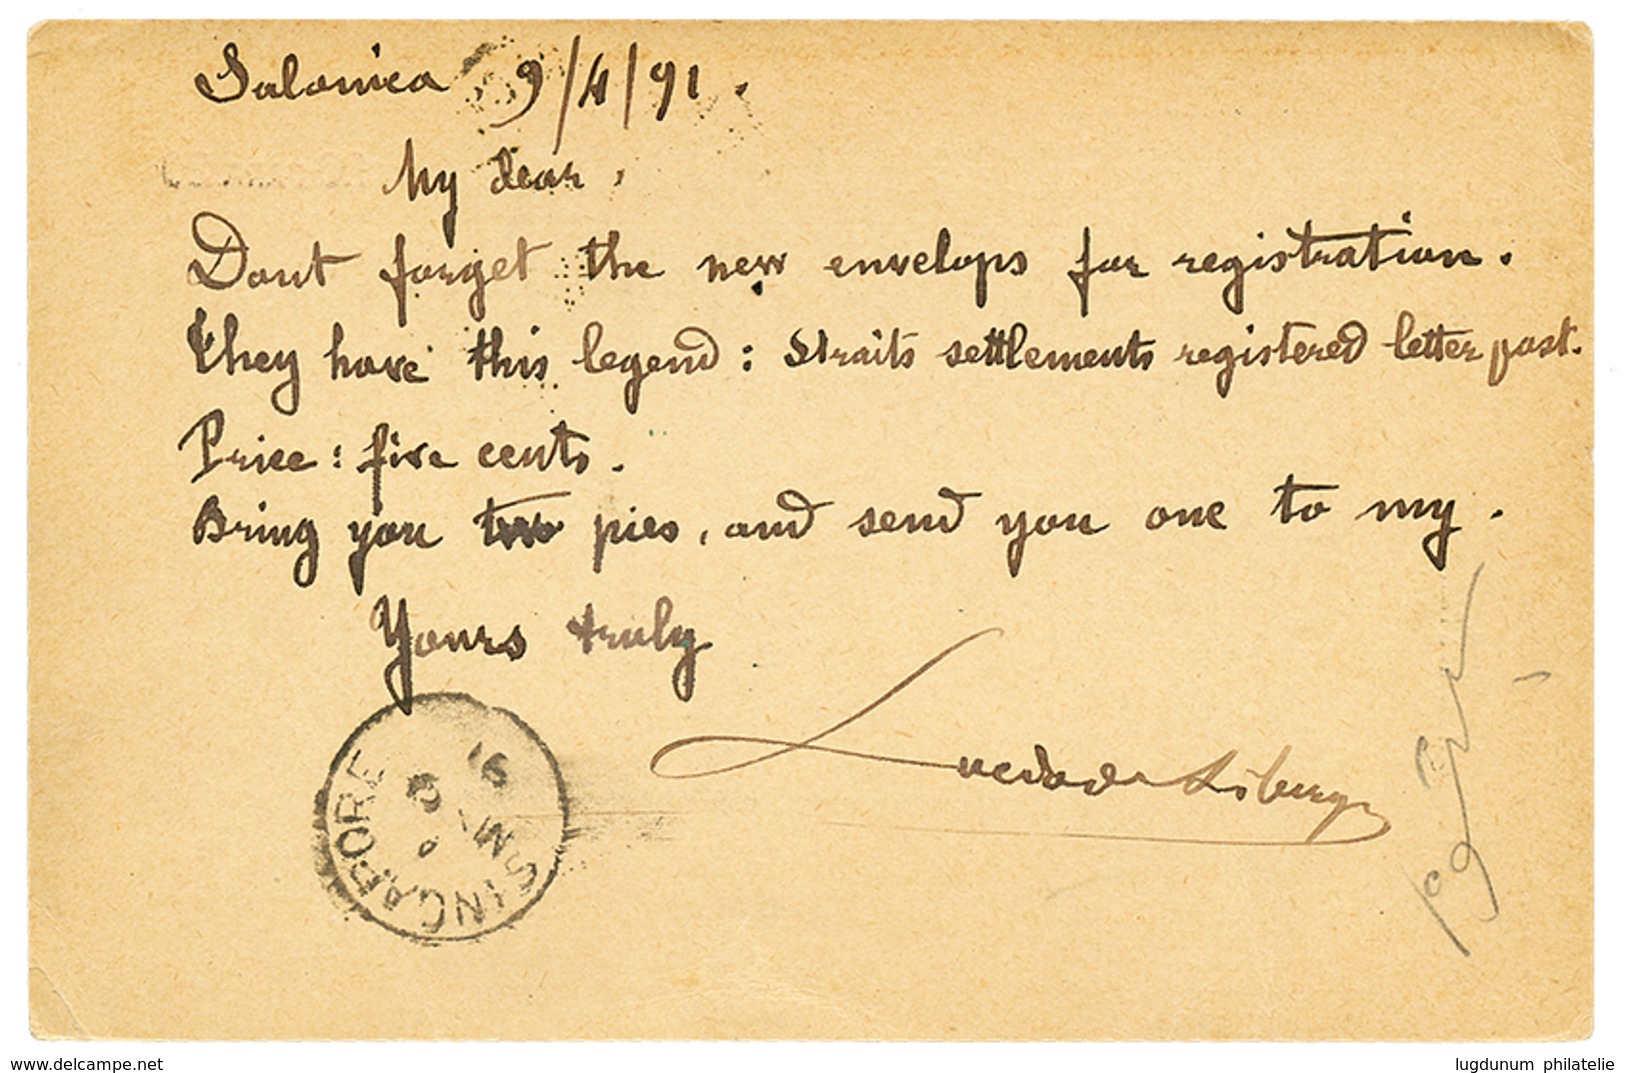 Salonica 9/4/91.
My dear,
Dont forget the new envelops for registration.
They have this legend: Straits settlements registered letter post.
Price: five cents.
Bring you two pies, and send you one to my.
Yours truly
SINGAPORE
MY
91
www.delcampe.net
lugdunum philatelie